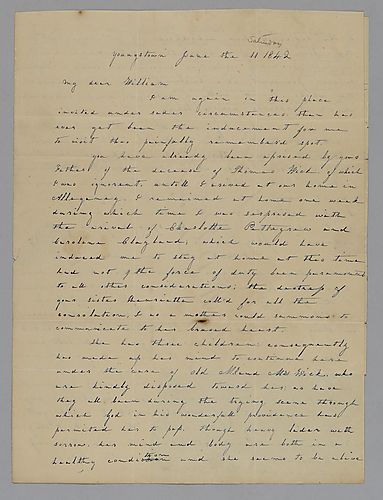 Saturday
Youngstown June the 11 1842
My dear William
I am again in this place
invited under sader circumstances than has
ever yet been the inducement for me
to visit this painfully rememberd spot.
You have already been aprised by your
Father of the decease of Thomas Wick, of which
I was ignorent, untill I arived at our home in
Allegheny, I remained at home one week
during which time I was surprised with
the arival of Charlotte Pettegrew and
Caroline Clayland, which would have
induced me to stay at home at this time
had not the force of duty been paramount
to all other considerations; the distress of
your sister Henriette call'd for all the
consolation, I as a mother could summons to
communicate to her breaved heart.
She has three children consequently
has made up her mind to continue here
under the care of old M and Mrs Wick, who
are kindly disposed toward her, as have
they all been during the trying scene through
which God in his wonderfull providence has
permited her to pass, though heavy laden with
sorrow, her mind and body are both in a
healthy condition and she seems to be alive